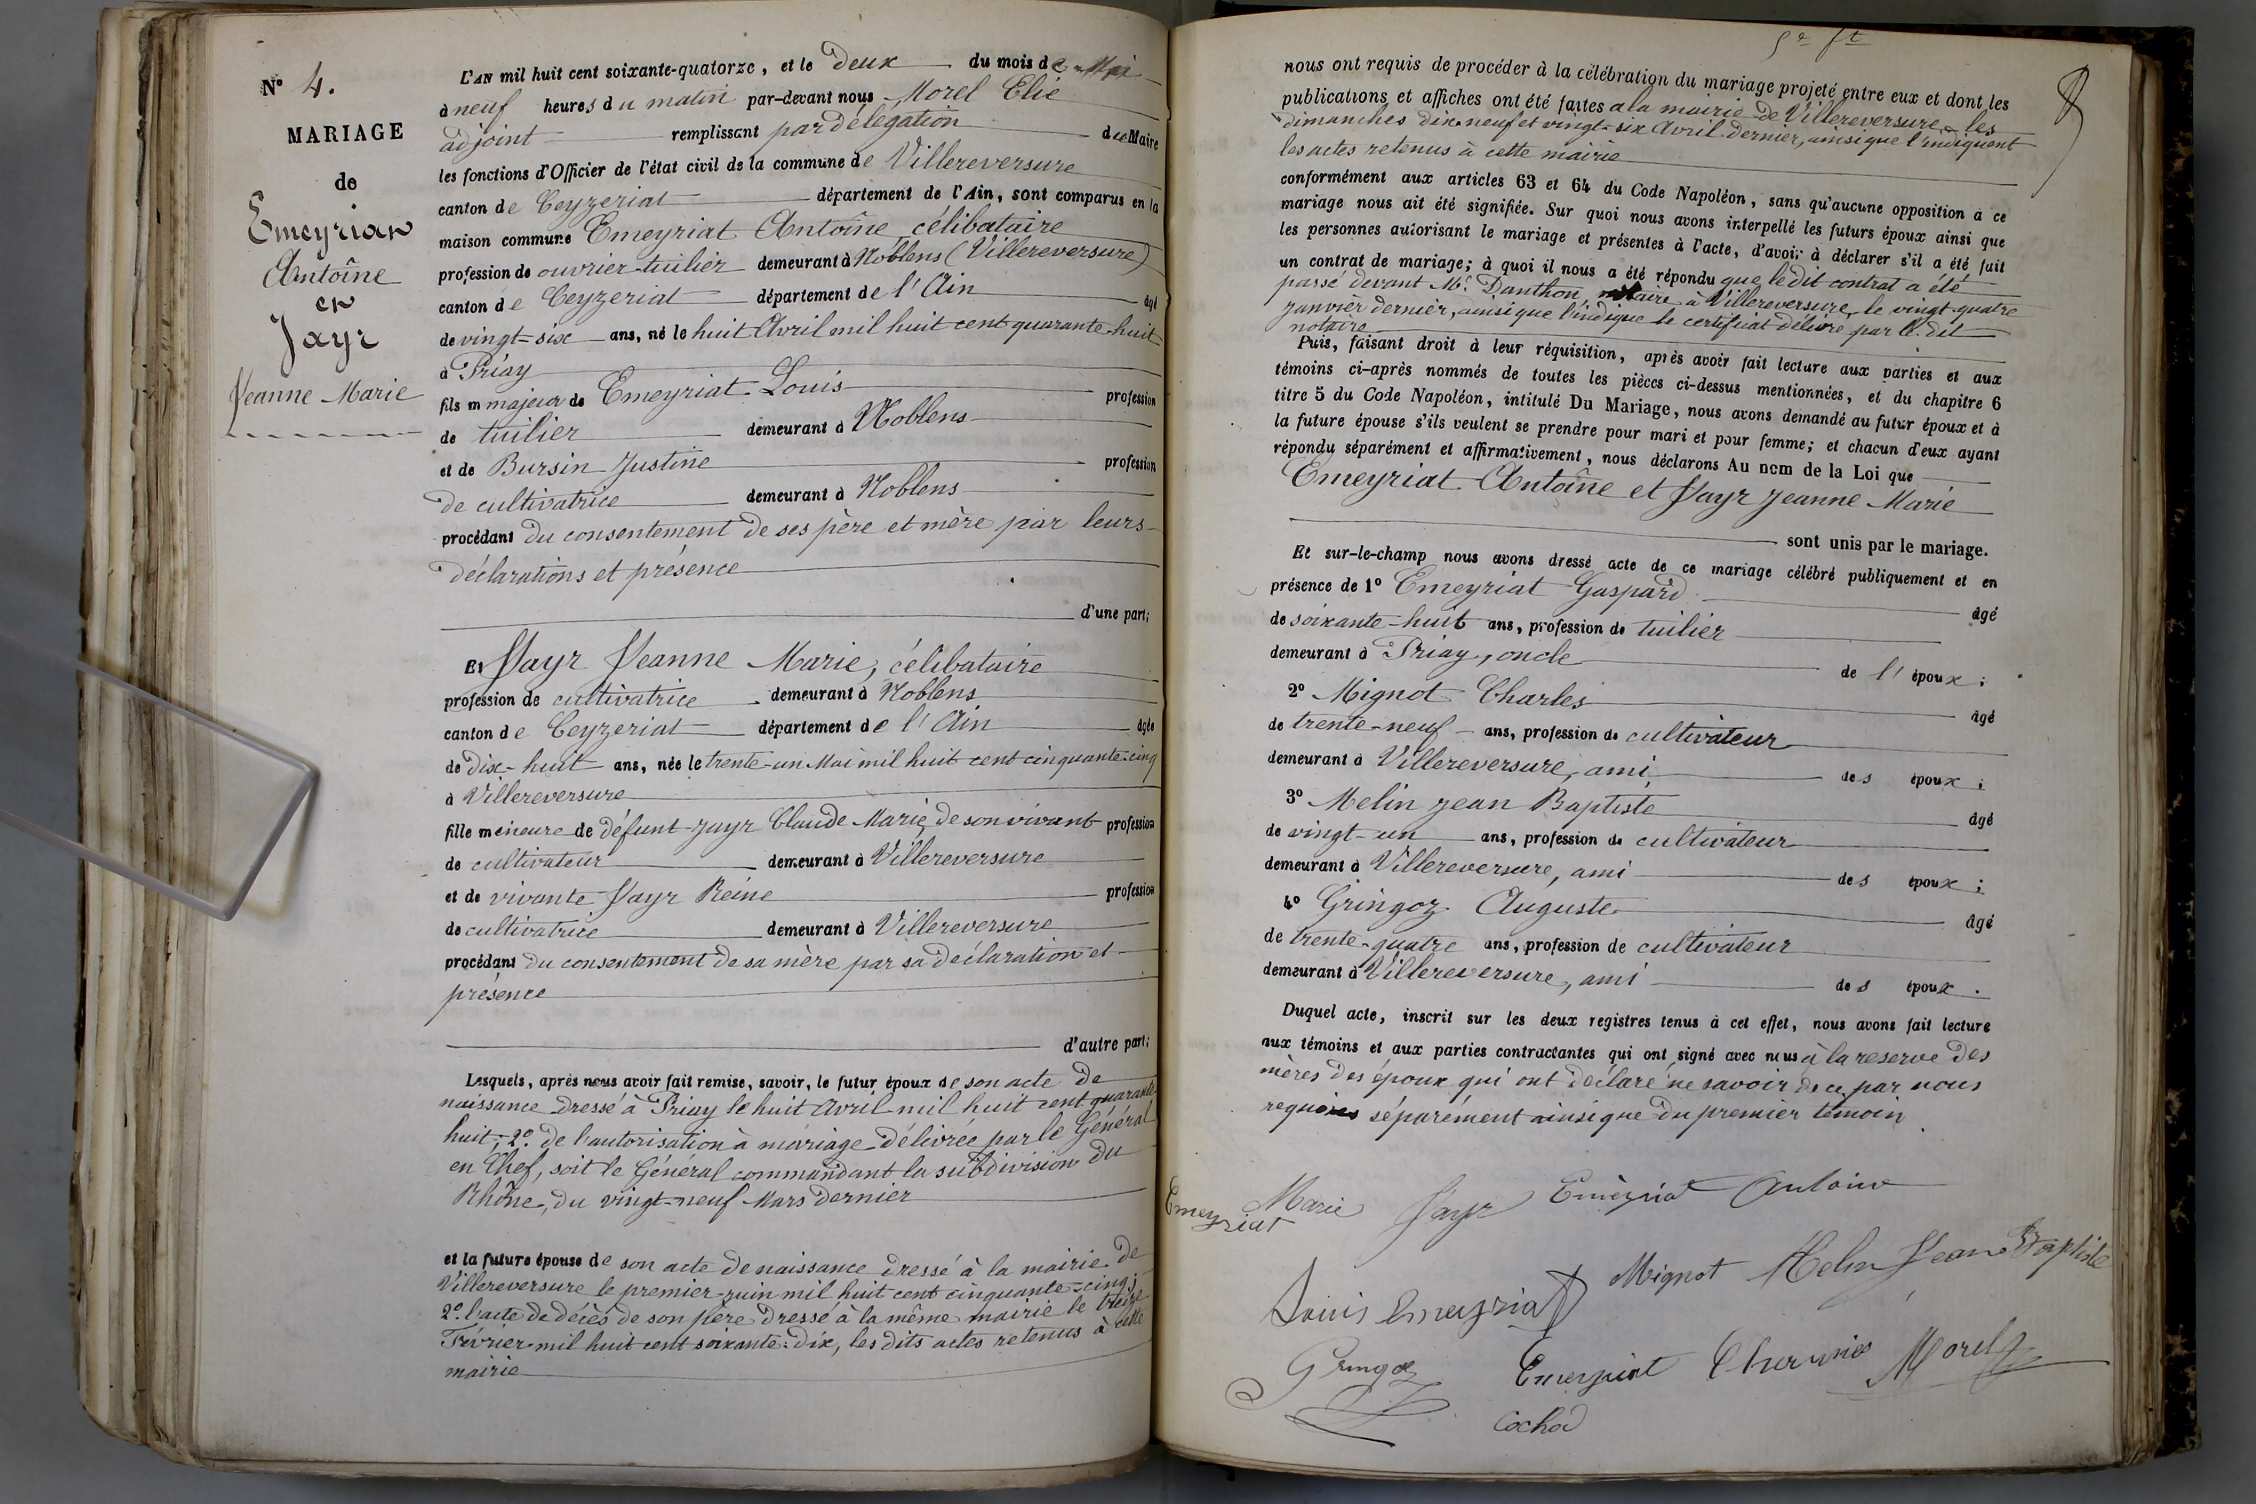 N° 4.
MARIAGE
de
Emeyriat
Antoîne
et
Jayr
Jeanne Marie
L'AN mil huit cent soixante-quatorze, et le deux du mois de Mai
à neuf heures du matin par-devant nous Morel Elie
adjoint remplissant par délégation du Maire
les fonctions d'Officier de l'état civil de la commune de Villereversure
canton de Ceyzeriat département de l'Ain, sont comparus en la
maison commune Emeyriat Antoîne, célibataire
profession de ouvrier-tuilier demeurant à Noblens (Villereversure)
canton de Ceyzeriat département de l'Ain âgé
de vingt-six ans, né le huit Avril mil huit cent quarante-huit
à Priay
fils m majeur de Emeyriat Louis profession
de tuilier demeurant à Noblens
et de Bursin Justine profession
de cultivatrice demeurant à Noblens
procédant du consentement de ses père et mère par leurs
déclarations et présence
d'une part;
Et Jayr Jeanne Marie, célibataire
profession de cultivatrice demeurant à Noblens
canton de Ceyzeriat département de l'Ain âgée
de dix-huit ans, née le trente-un Mai mil huit cent cinquante-cinq
à Villereversure
fille mineure de défunt Jayr Claude Marie, de son vivant profession
de cultivateur demeurant à Villereversure
et de vivante Jayr Reine profession
de cultivatrice demeurant à Villereversure
procédant du consentement de sa mère par sa déclaration et
présence
d'autre part;
Lesquels, après nous avoir fait remise, savoir, le futur époux de son acte de
naissance dressé à Priay le huit Avril mil huit cent quarante
huit; 2° de l'autorisation à mariage délivrée par le Général
en Chef, soit le Général commandant la subdivision du
Rhône, du vingt-neuf Mars dernier
et la future épouse de son acte de naissance dressé à la mairie de
Villereversure le premier juin mil huit cent cinquante-cinq;
2° l'acte de décès de son père dressé à la même mairie le treize
Février mil huit cent soixante-dix, les dits actes retenus à cette
mairie
nous ont requis de procéder à la célébration du mariage projeté entre eux et dont les
publications et affiches ont été faites a la mairie de Villereversure les
dimanches dix-neuf et vingt-six Avril dernier, ainsi que l'indiquent
les actes retenus à cette mairie
conformément aux articles 63 et 64 du Code Napoléon, sans qu'aucune opposition à ce
mariage nous ait été signifiée. Sur quoi nous avons interpellé les futurs époux ainsi que
les personnes autorisant le mariage et présentes à l'acte, d'avoir à déclarer s'il a été fait
un contrat de mariage; à quoi il nous a été répondu que le dit contrat a été
passé devant Me. Danthon, notaire à Villereversure, le vingt-quatre
janvier dernier, ainsi que l'indique le certificat délivré par le dit
notaire
Puis, faisant droit à leur réquisition, après avoir fait lecture aux parties et aux
témoins ci-après nommés de toutes les pièces ci-dessus mentionnées, et du chapitre 6
titre 5 du Code Napoléon, intitulé Du Mariage, nous avons demandé au futur époux et à
la future épouse s'ils veulent se prendre pour mari et pour femme; et chacun d'eux ayant
répondu séparément et affirmativement, nous déclarons Au nom de la Loi que
Emeyriat Antoîne et Jayr Jeanne Marie
sont unis par le mariage.
Et sur-le-champ nous avons dressé acte de ce mariage célébré publiquement et en
présence de 1° Emeyriat Gaspard âgé
de soixante-huit ans, profession de tuilier
demeurant à Priay, oncle de l'époux;
2° Mignot Charles âgé
de trente-neuf ans, profession de cultivateur
demeurant à Villereversure, ami des époux;
3° Melin Jean Baptiste âgé
de vingt-un ans, profession de cultivateur
demeurant à Villereversure, ami des époux;
4° Gringoz Auguste âgé
de trente-quatre ans, profession de cultivateur
demeurant à Villereversure, ami des époux.
Duquel acte, inscrit sur les deux registres tenus à cet effet, nous avons fait lecture
aux témoins et aux parties contractantes qui ont signé avec nous à la reserve des
mères des époux qui ont déclaré ne savoir de ce par nous
requises séparément ainsi que du premier témoin.
Emeyriat Marie Jayr Emeyriat Antoine
Louis Emeyriat Mignot Melin Jean Baptiste
Gringoz Emeyriat Morel
Cochod